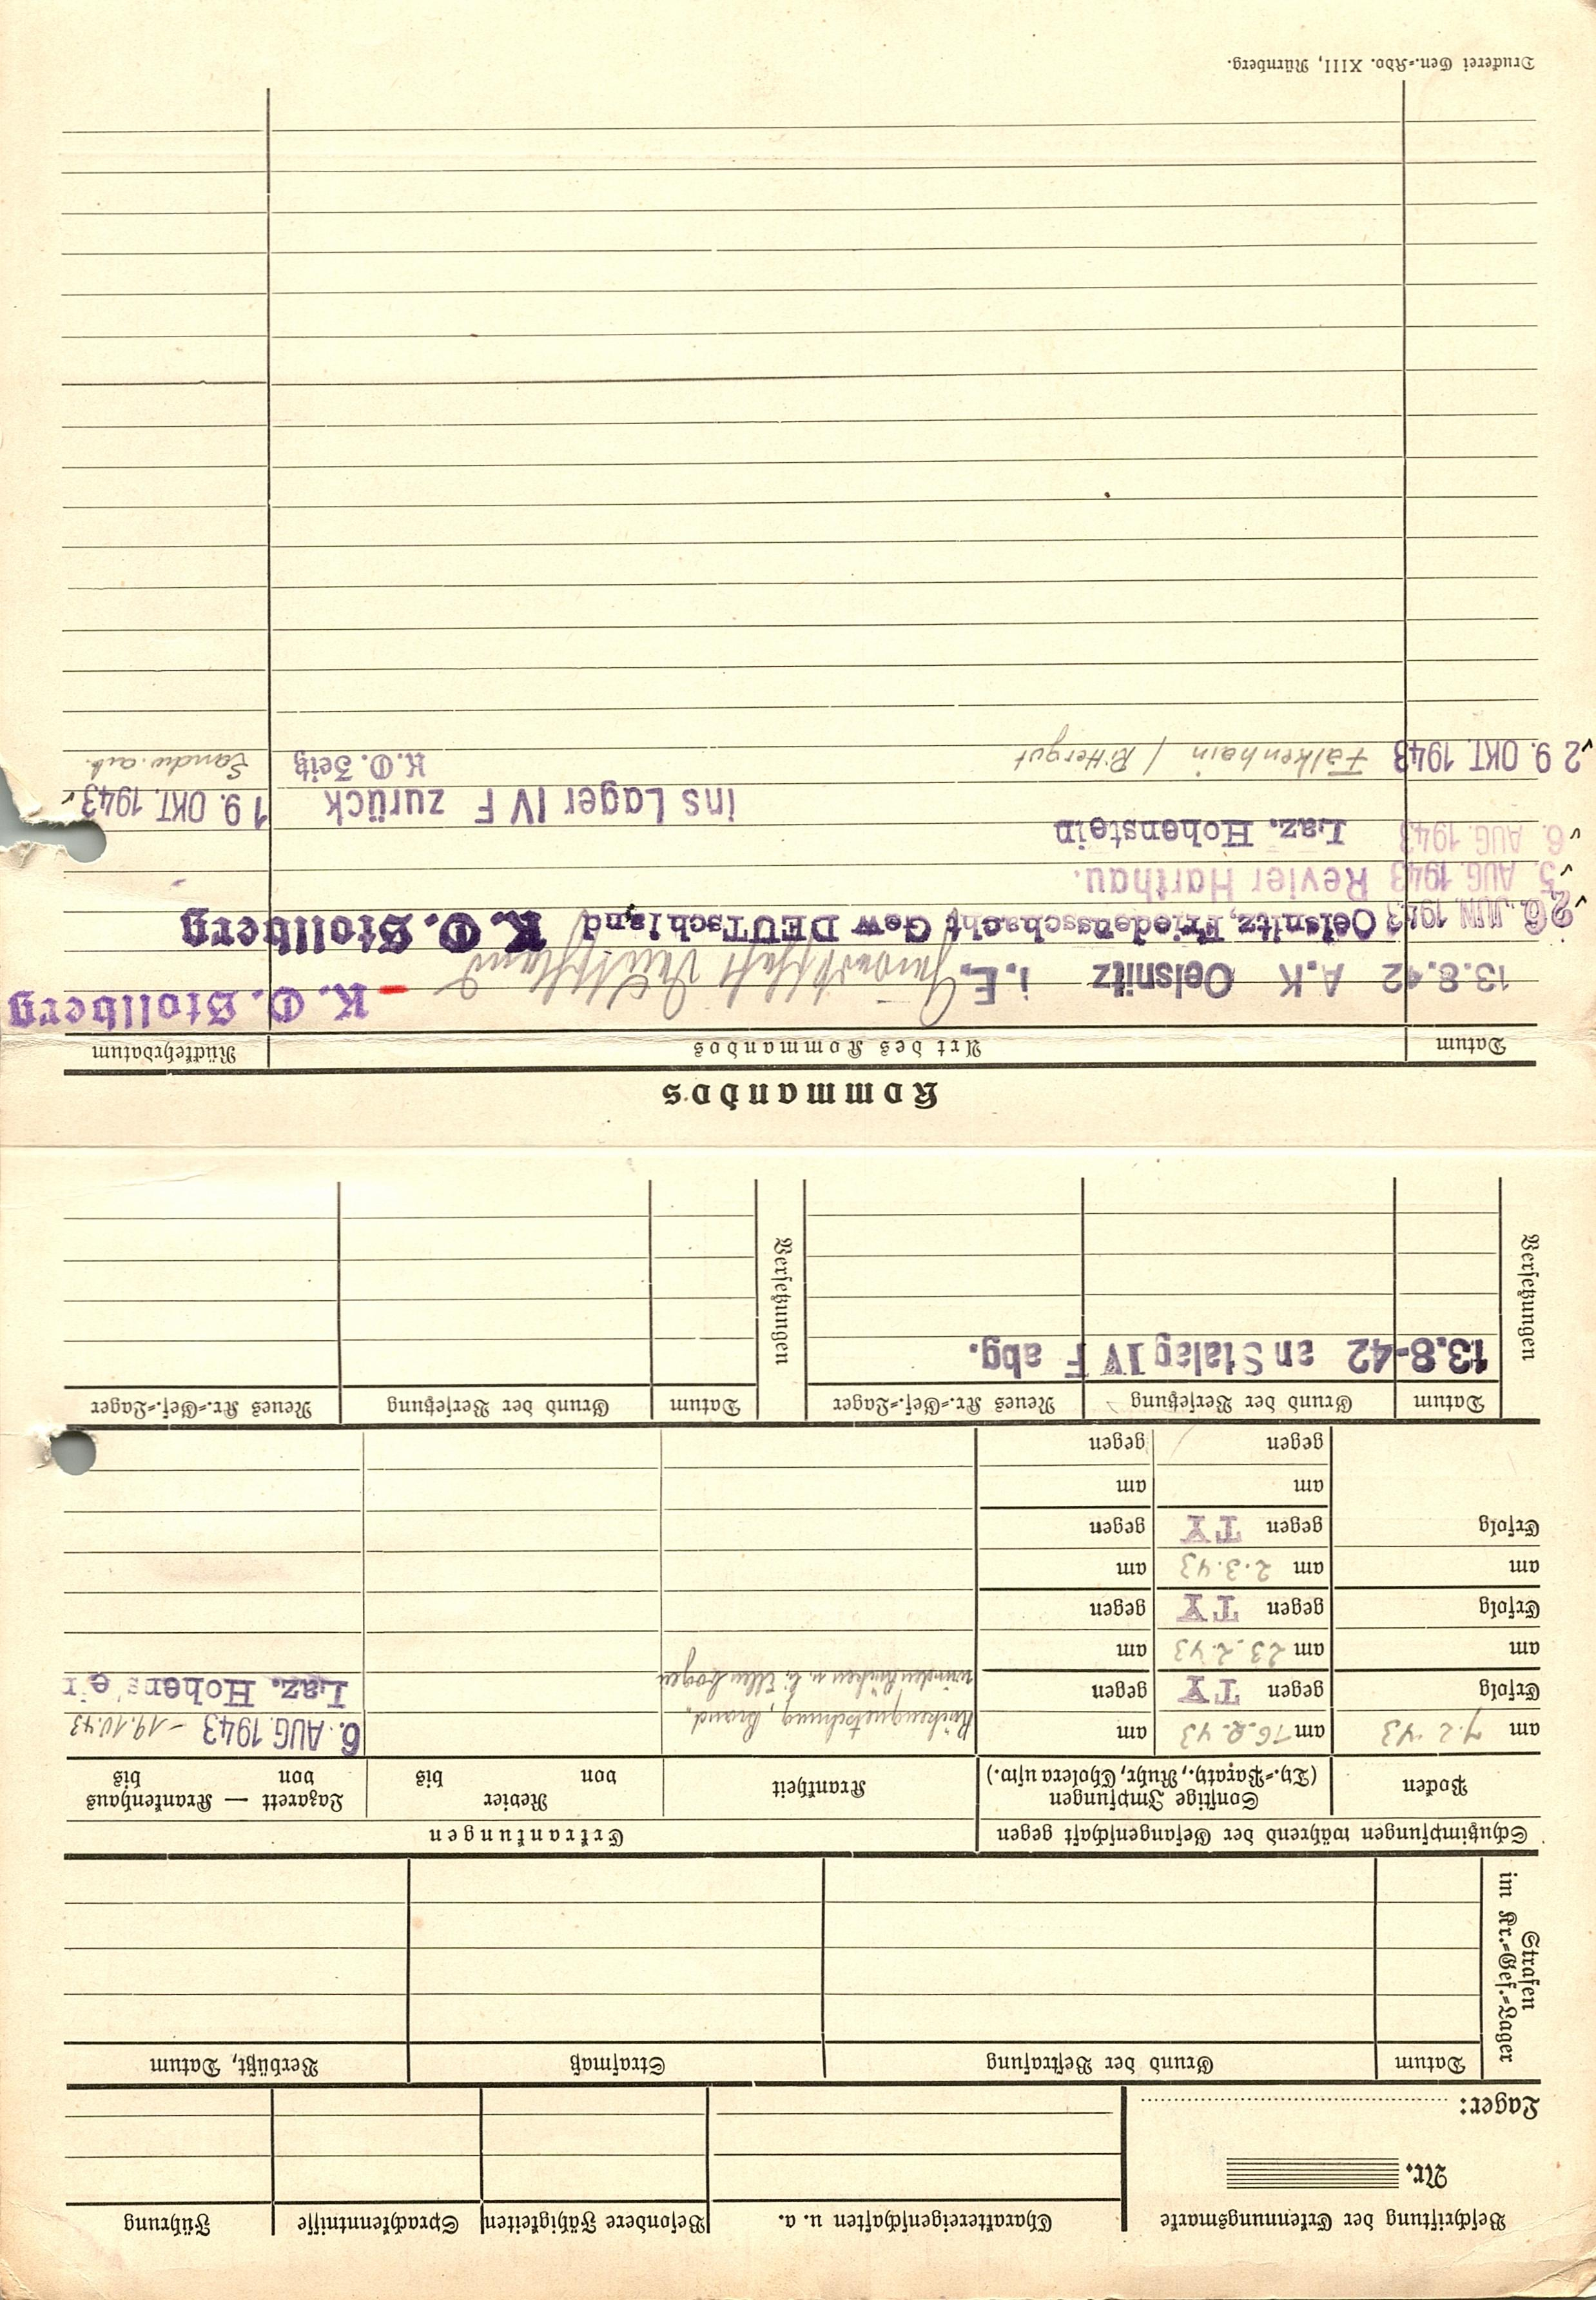 Beschriftung der Erkennungsmarke
Nr.
Lager:
Charaktereigenschaften u. a.
Besondere Fähigkeiten
Sprachkenntnisse
Führung
Strafen
im Kr.=Gef.=Lager
Datum
Grund der Bestrafung
Strafmaß
Verbüßt, Datum
Schutzimpfungen während der Gefangenschaft gegen
Erkrankungen
Pocken
Sonstige Impfungen
(Ty.=Paraty., Ruhr, Cholera usw.)
Krankheit
Revier
von bis
Lazarett — Krankenhaus
von bis
am 7.2.43
am 16.2.43
am
Rückenquetschung, Brand,
6. AUG. 1943 - 19.10.43
Erfolg
gegen TY
gegen
wunden Rücken u. li. Ellenbogen
Laz. Hohens ei
am
am 23.2.43
am
Erfolg
gegen TY
gegen
am
am 2.3.43
am
Erfolg
gegen TY
gegen
am
am
gegen
gegen
Versetzungen
Datum
Grund der Versetzung
Neues Kr.=Gef.=Lager
Versetzungen
Datum
Grund der Versetzung
Neues Kr.=Gef.=Lager
13.8-42 an Stalag IV F abg.
Kommandos
Datum
Art des Kommandos
Rückkehrdatum
13.8.42 A.K Oelsnitz i.E. Gewerkschaft Deutschland - K. O. Stollberg
26. JUN. 1943 Oelsnitz, Friedensschacht Gew DEUTschland K. O. Stollberg
5. AUG. 1943 Revier Harthau.
6. AUG. 1943 Laz. Hohenstein
ins Lager IV F zurück 19. OKT. 1943
29. OKT. 1943 Falkenhain / Rittergut K.O. Zeitz Landw. arb.
Druckerei Gen.=Kdo. XIII, Nürnberg.